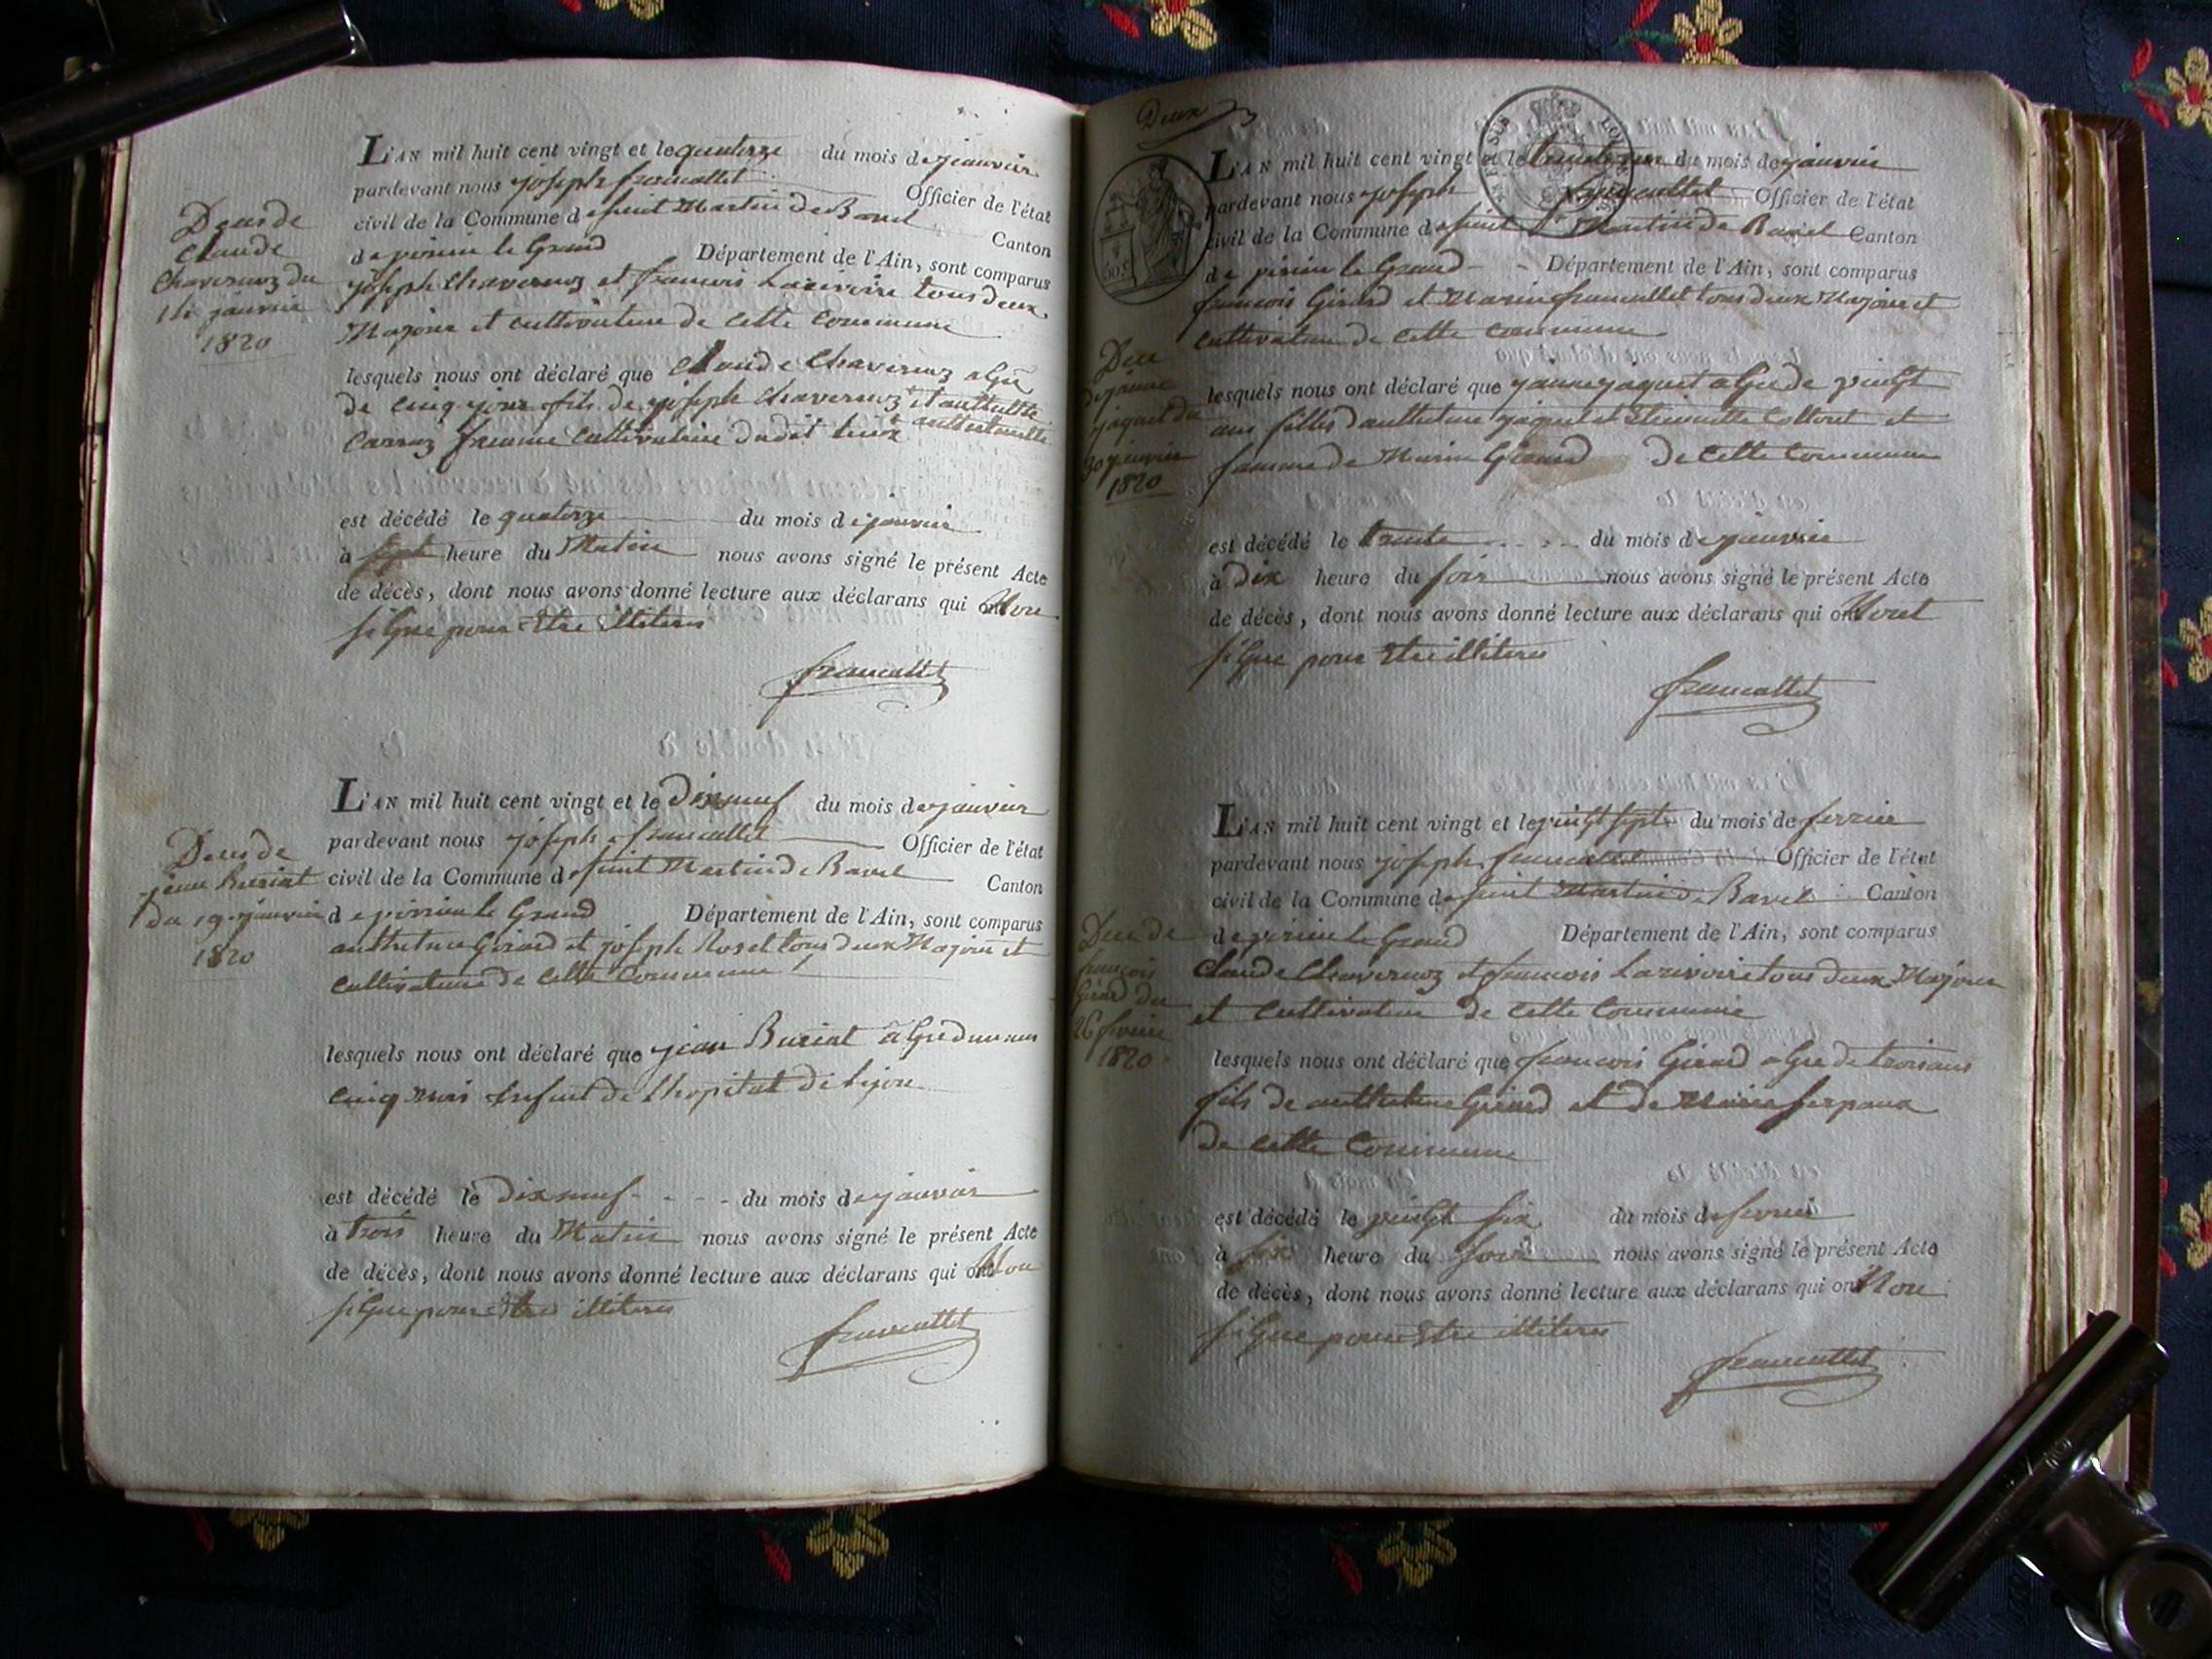 Deces de
Claude
Chavernoz du
14 janvier
1820
L'AN mil huit cent vingt et le quatorze du mois de janvier
pardevant nous joseph francallet Officier de l'état
civil de la Commune de saint Martin de Bavel Canton
de virieu le Grand Département de l'Ain, sont comparus
joseph Chavernoz et francois Larivoire tous deux
Majour et cultivateur de cette commune
lesquels nous ont déclaré que Claude Chavernoz agée
de cinq jour fils de joseph Chavernoz et
Carraz famme cultivatrice dudit lieux
est décédé le quatorze du mois de janvier
à sept heure du Matin nous avons signé le présent Acte
de décès, dont nous avons donné lecture aux déclarans qui ont Non
signe pour etre illiteres
francallet
Deces de
jean Buriat
du 19 janvier
1820
L'AN mil huit cent vingt et le Dixneuf du mois de janvier
pardevant nous joseph francallet Officier de l'état
civil de la Commune de saint Martin de Bavel Canton
de virieu le Grand Département de l'Ain, sont comparus
anthelme Girard et joseph Roset tous deux Majour et
cultivateur de cette Commune
lesquels nous ont déclaré que jean Buriat agé
cinq mois enfant de lhopital de
est décédé le Dixneuf du mois de janvier
à trois heure du Matin nous avons signé le présent Acte
de décès, dont nous avons donné lecture aux déclarans qui ont Non
signe pour etre illiteres
francallet
Deux
50 c
L'AN mil huit cent vingt et le du mois de janvier
pardevant nous joseph francallet Officier de l'état
civil de la Commune de saint Martin de Bavel Canton
de virieu le Grand Département de l'Ain, sont comparus
francois Girard et Marin francallet tous deux Majour et
cultivateur de cette commune
Dece
de janne
jaquet du
30 janvier
1820
lesquels nous ont déclaré que janne jaquet agée de vingt
ans filles danthelme jaquet et Etiennette Collovet et
famme de Marin Girard de cette Commune
est décédé le trente du mois de janvier
à Dix heure du soir nous avons signé le présent Acte
de décès, dont nous avons donné lecture aux déclarans qui ont
signe pour etre illiteres
francallet
L'AN mil huit cent vingt et le vingt sept du mois de fevrier
pardevant nous joseph francallet Officier de l'état
civil de la Commune de saint Martin de Bavel Canton
de virieu le Grand Département de l'Ain, sont comparus
Claude Chavernoz et francois Larivoire tous deux Majour
et Cultivateur de cette Commune
Dece de
francois
Girard du
26 fevrier
1820
lesquels nous ont déclaré que francois Girard agée de trois ans
fils de anthelme Girard et de Marie
de cette Commune
est décédé le vingt six du mois de fevrier
à six heure du soir nous avons signé le présent Acte
de décès, dont nous avons donné lecture aux déclarans qui ont Non
signe pour etre illiteres
francallet